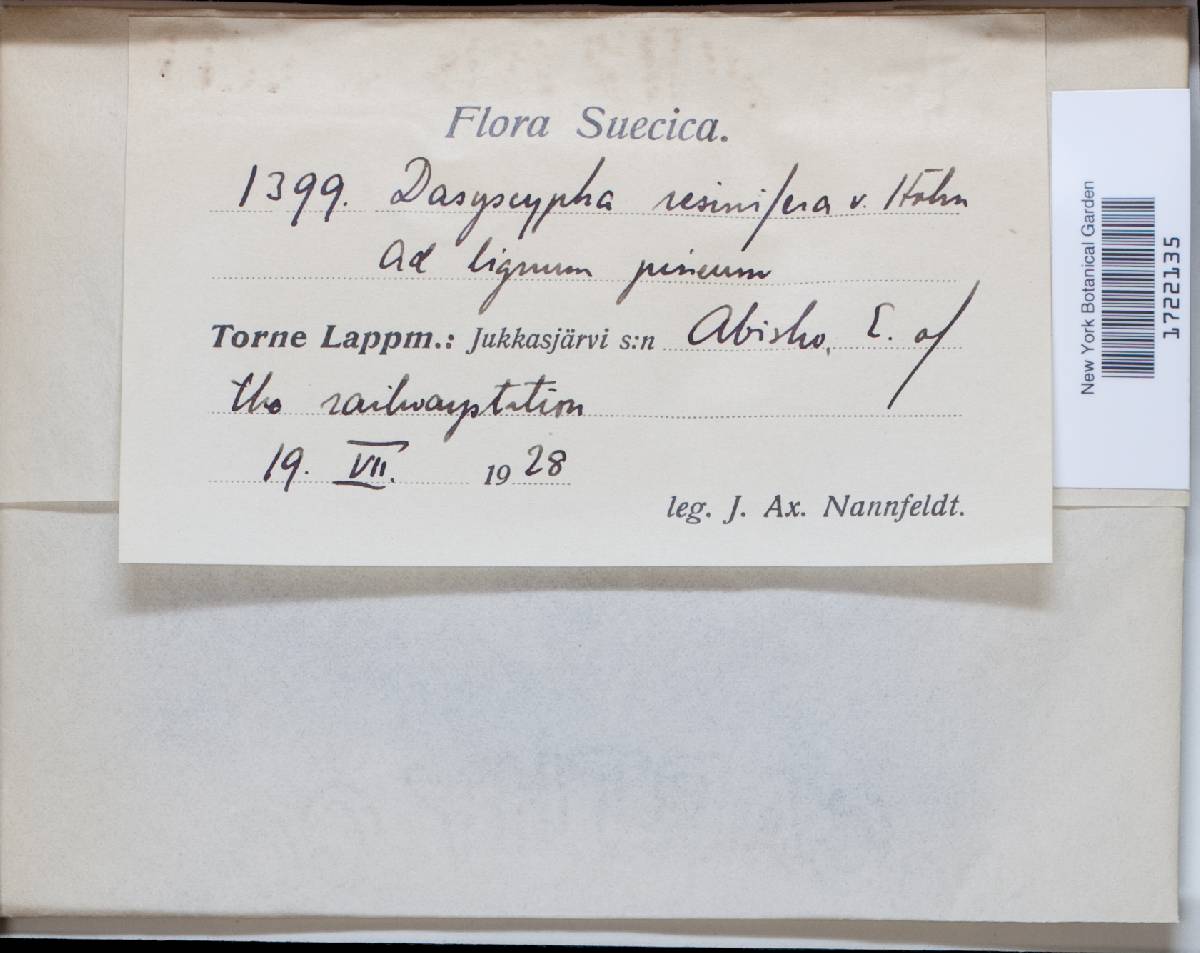 Flora Suecica.
1399. Dasyscypha resinifera v. Höhn
Ad lignum pineum
Torne Lappm.: Jukkasjärvi s:n Abisko, E. of
the railwaystation
19. VII. 1928
leg. J. Ax. Nannfeldt.
New York Botanical Garden
1722135